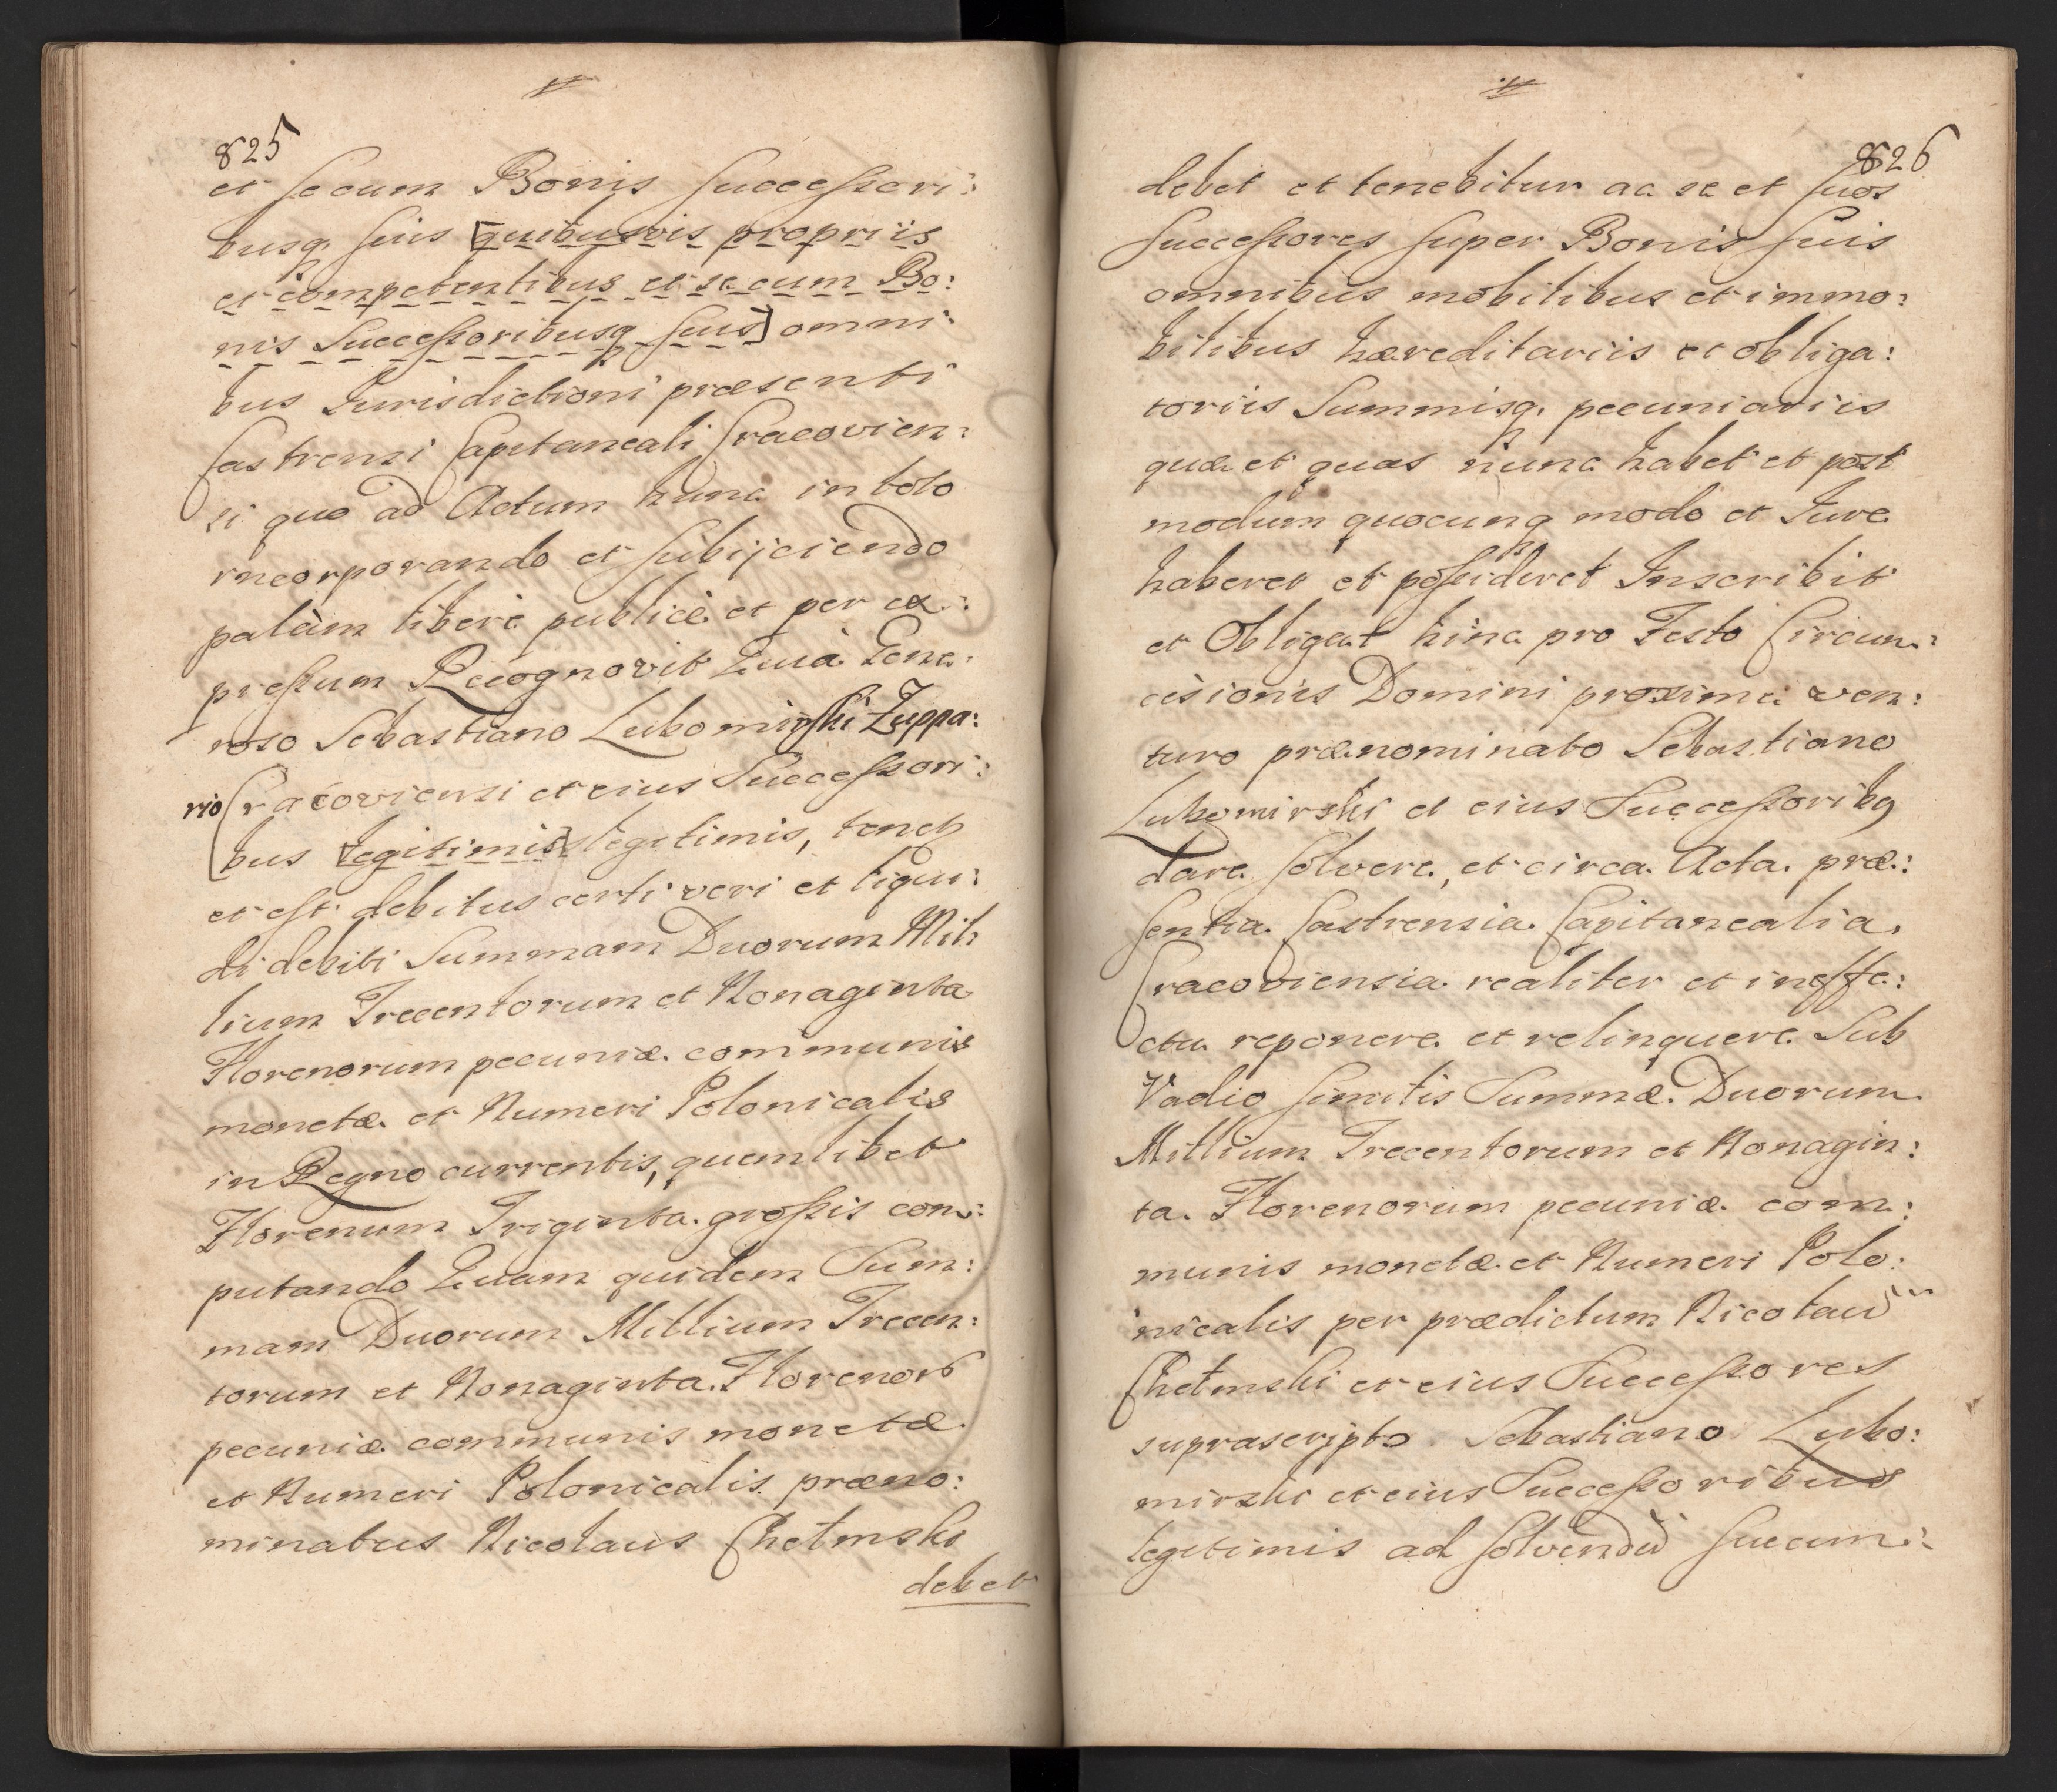 825
et secum Bonis Successori:
busq suis [quibusvis propriis
et competentibus et se cum Bo:
nis Successoribusq suis] omni:
bus Jurisdictioni præsenti
Castrensi Capitaneali Cracovien:
si quo ad Actum hunc in toto
incorporando et subijciendo
palàm liberè publicè et per ex:
pressum Recognovit Quià Gene:
roso Sebastiano Lubomirski Zuppa:
rio Cracoviensi et eius Successori:
bus [legitimis] legitimis, teneb
et est debitus certi veri et liqui:
di debiti Summam Duorum Mil:
lium Trecentorum et Nonaginta
Florenorum pecuniæ communis
monetæ et Numeri Polonicalis
in Regno currentis, quemlibet
Florenum Triginta grossis com:
putando Quam quidem Sum:
mam Duorum Millium Trecen:
torum et Nonaginta Florenor
pecuniæ communis monetæ
et Numeri Polonicalis præno:
minatus Nicolaus Chełmski
debet
826
debet et tenebitur ac se et suos
Successores super Bonis suis
omnibus mobilibus et immo:
bilibus hæreditariis et obliga:
toriis Summisq pecuniariis
quæ et quas nunc habet et post
modum quocunq modo et Jure
haberet et possideret Inscribit
et Obligat hinc pro Festo Circum:
cisionis Domini proxime ven:
turo prænominato Sebastiano
Lubomirski et eius Successorib9
dare solvere, et circa Acta præ:
sentia Castrensia Capitanealia
Cracoviensia realiter et in effe:
ctu reponere et relinquere Sub
Vadio similis Summæ Duorum
Millium Trecentorum et Nonagin:
ta Florenorum pecuniæ com:
munis monetæ et Numeri Polo:
nicalis per prædictum Nicolau
Chełmski et eius Successores
suprascripto Sebastiano Lubo:
mirski et eius Successoribus
legitimis ad solvendu succum: